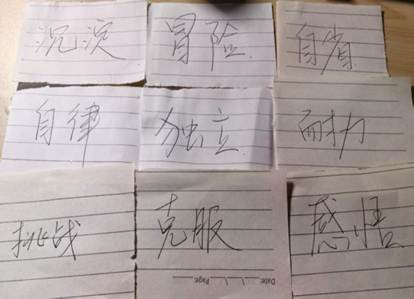 沉淀 冒险 自省
自律 独立 耐力
挑战 克服 感悟
Date: Page: